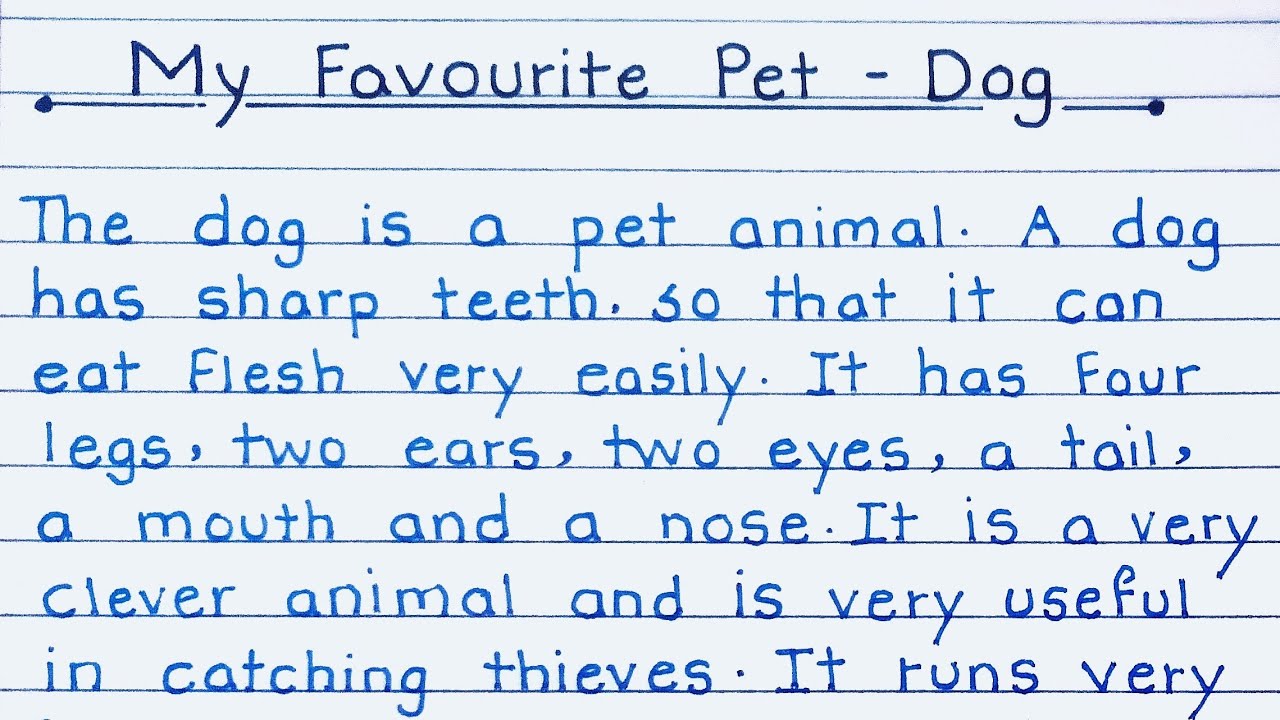 My Favourite Pet - Dog
The dog is a pet animal. A dog
has sharp teeth. so that it can
eat Flesh very easily. It has Four
legs, two ears, two eyes, a tail,
a mouth and a nose. It is a very
clever animal and is very useful
in catching thieves. It runs very